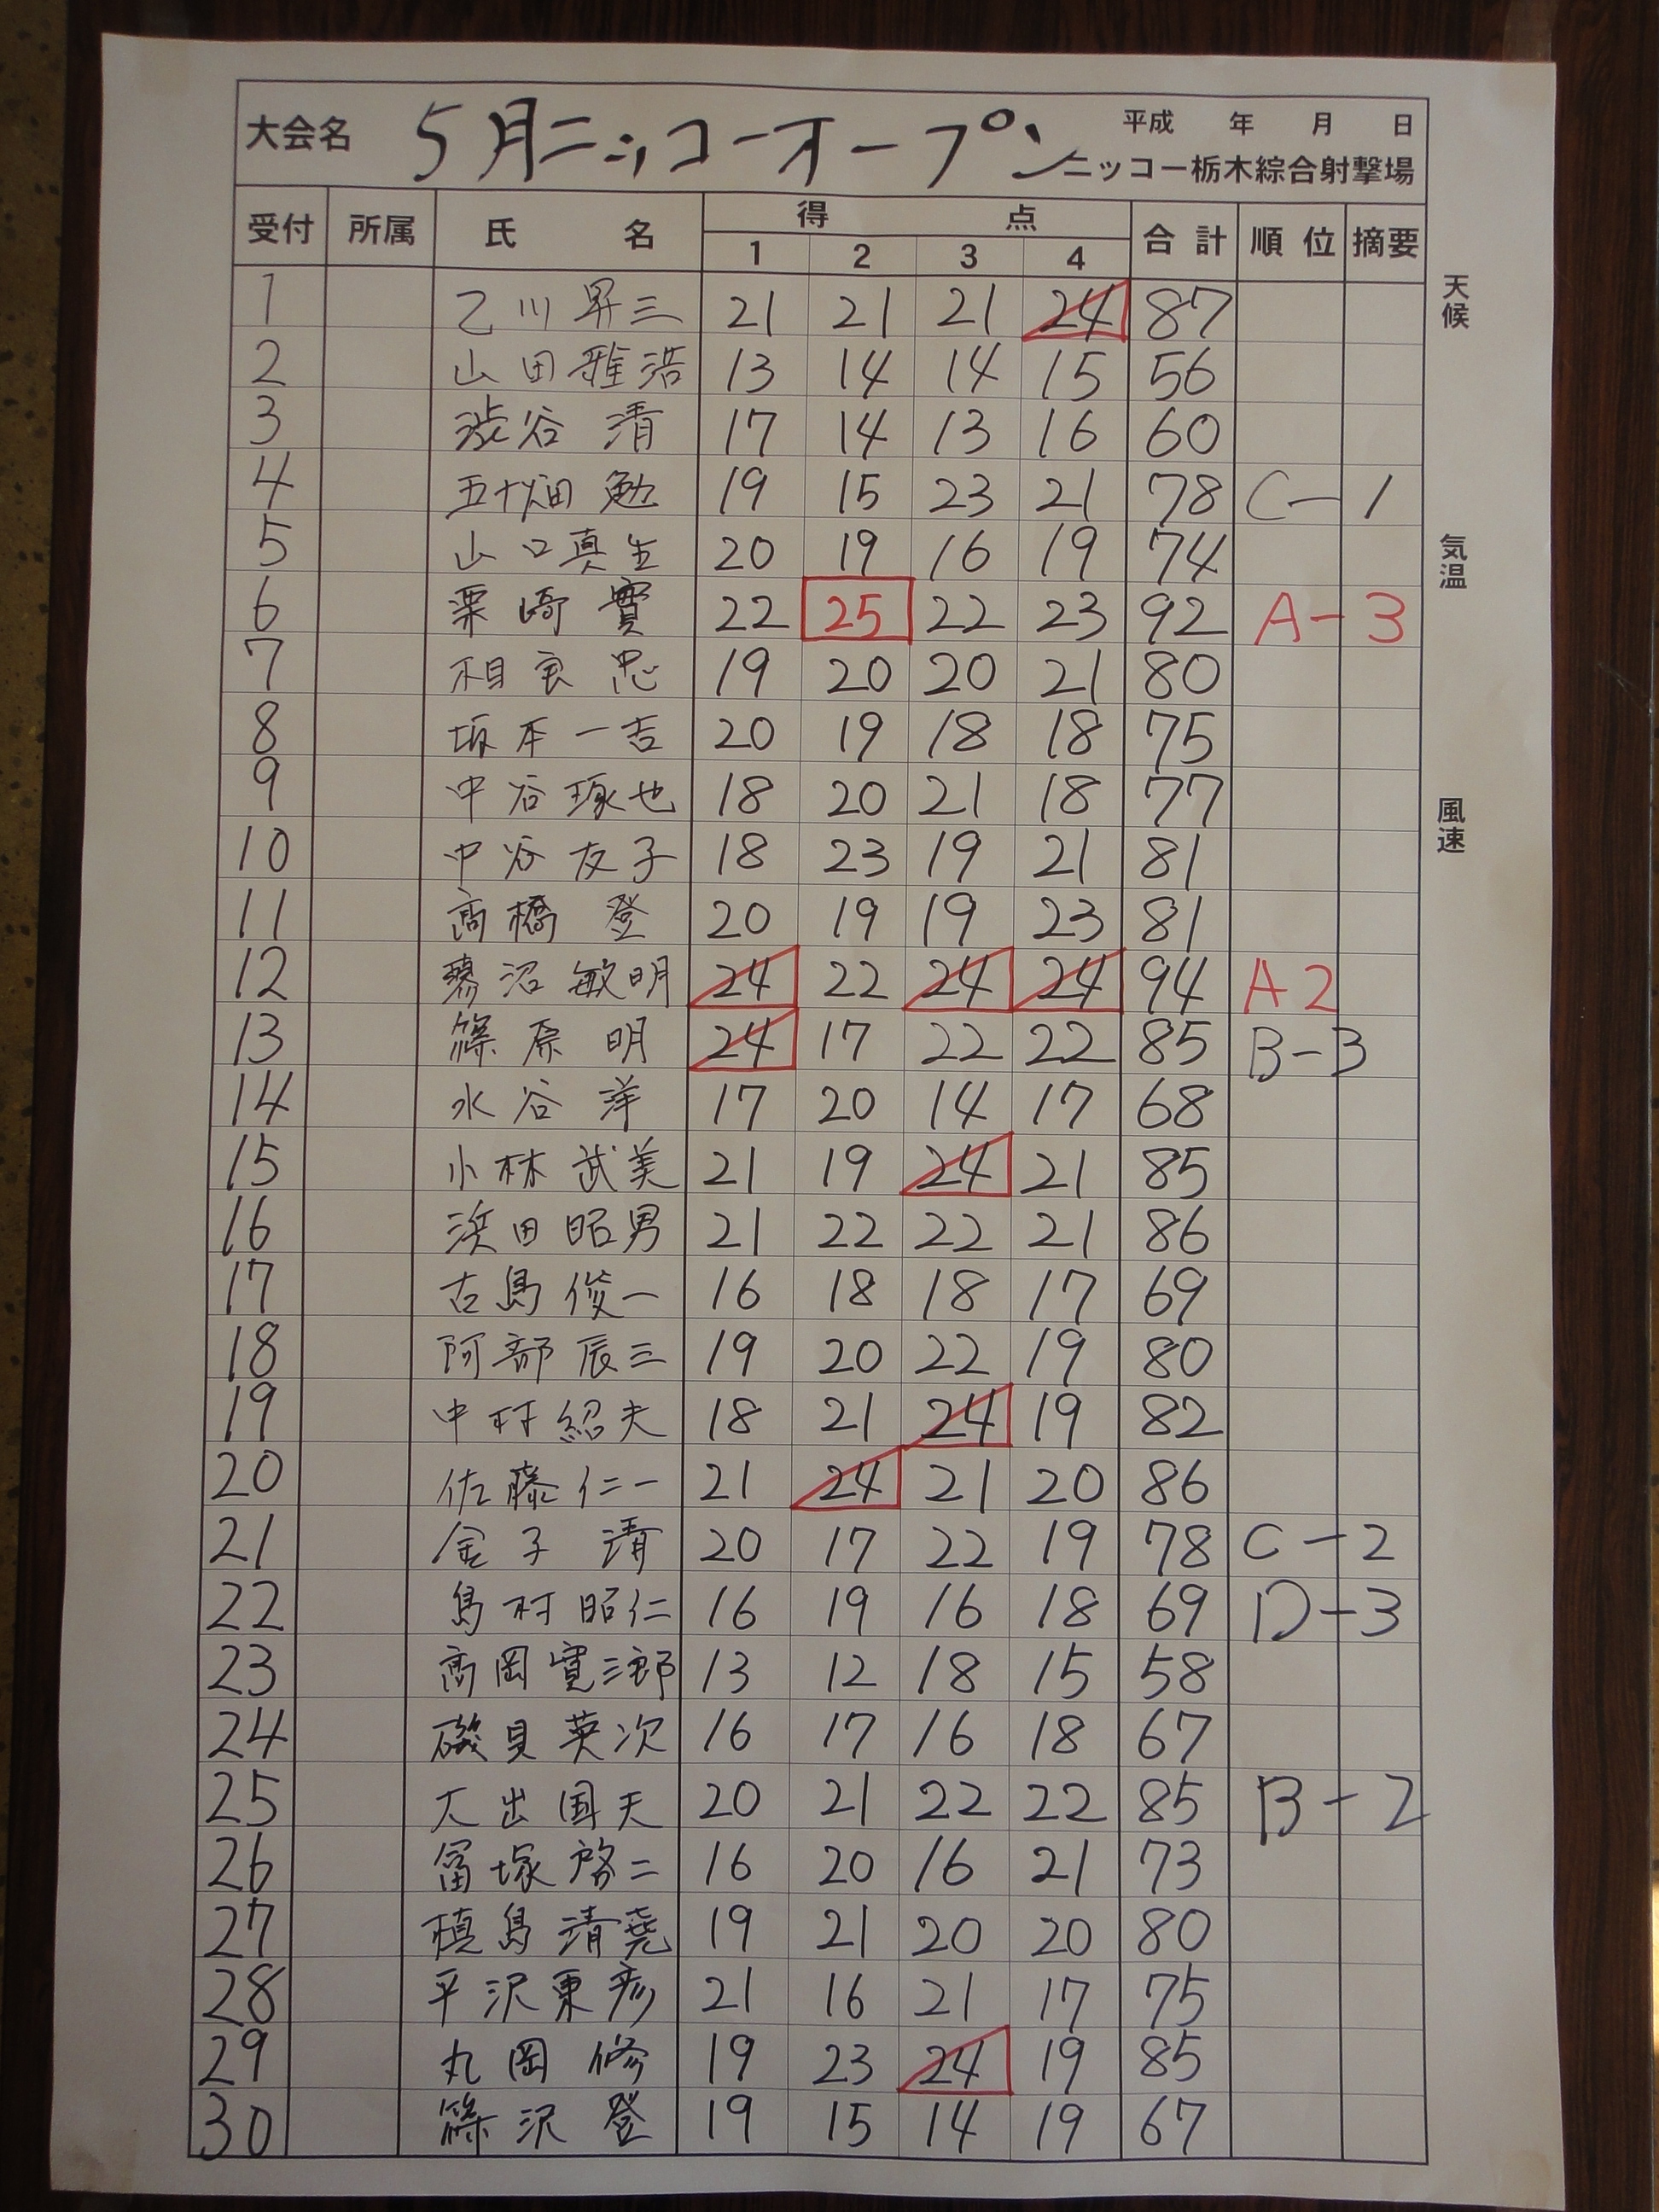 大会名 5月ニッコーオープン 平成 年 月 日
ニッコー栃木綜合射撃場
受付 所属 氏 名 得 点 合計 順位 摘要
1 2 3 4
1 乙川昇三 21 21 21 24 87
2 山田雅浩 13 14 14 15 56
3 渋谷 清 17 14 13 16 60
4 五十畑 勉 19 15 23 21 78 C-1
5 山口真生 20 19 16 19 74
6 栗崎 實 22 25 22 23 92 A-3
7 相良 忠 19 20 20 21 80
8 坂本一吉 20 19 18 18 75
9 中谷琢也 18 20 21 18 77
10 中谷友子 18 23 19 21 81
11 髙橋 登 20 19 19 23 81
12 沼敏明 24 22 24 24 94 A2
13 篠原 明 24 17 22 22 85 B-3
14 水谷 洋 17 20 14 17 68
15 小林武美 21 19 24 21 85
16 浜田昭男 21 22 22 21 86
17 古島俊一 16 18 18 17 69
18 阿部辰三 19 20 22 19 80
19 中村紹夫 18 21 24 19 82
20 佐藤仁一 21 24 21 20 86
21 金子 清 20 17 22 19 78 C-2
22 島村昭仁 16 19 16 18 69 D-3
23 髙岡寛三郎 13 12 18 15 58
24 磯貝英次 16 17 16 18 67
25 大出国夫 20 21 22 22 85 B-2
26 冨塚啓二 16 20 16 21 73
27 槙島清堯 19 21 20 20 80
28 平沢東彦 21 16 21 17 75
29 丸岡 修 19 23 24 19 85
30 篠沢 登 19 15 14 19 67
天候
気温
風速